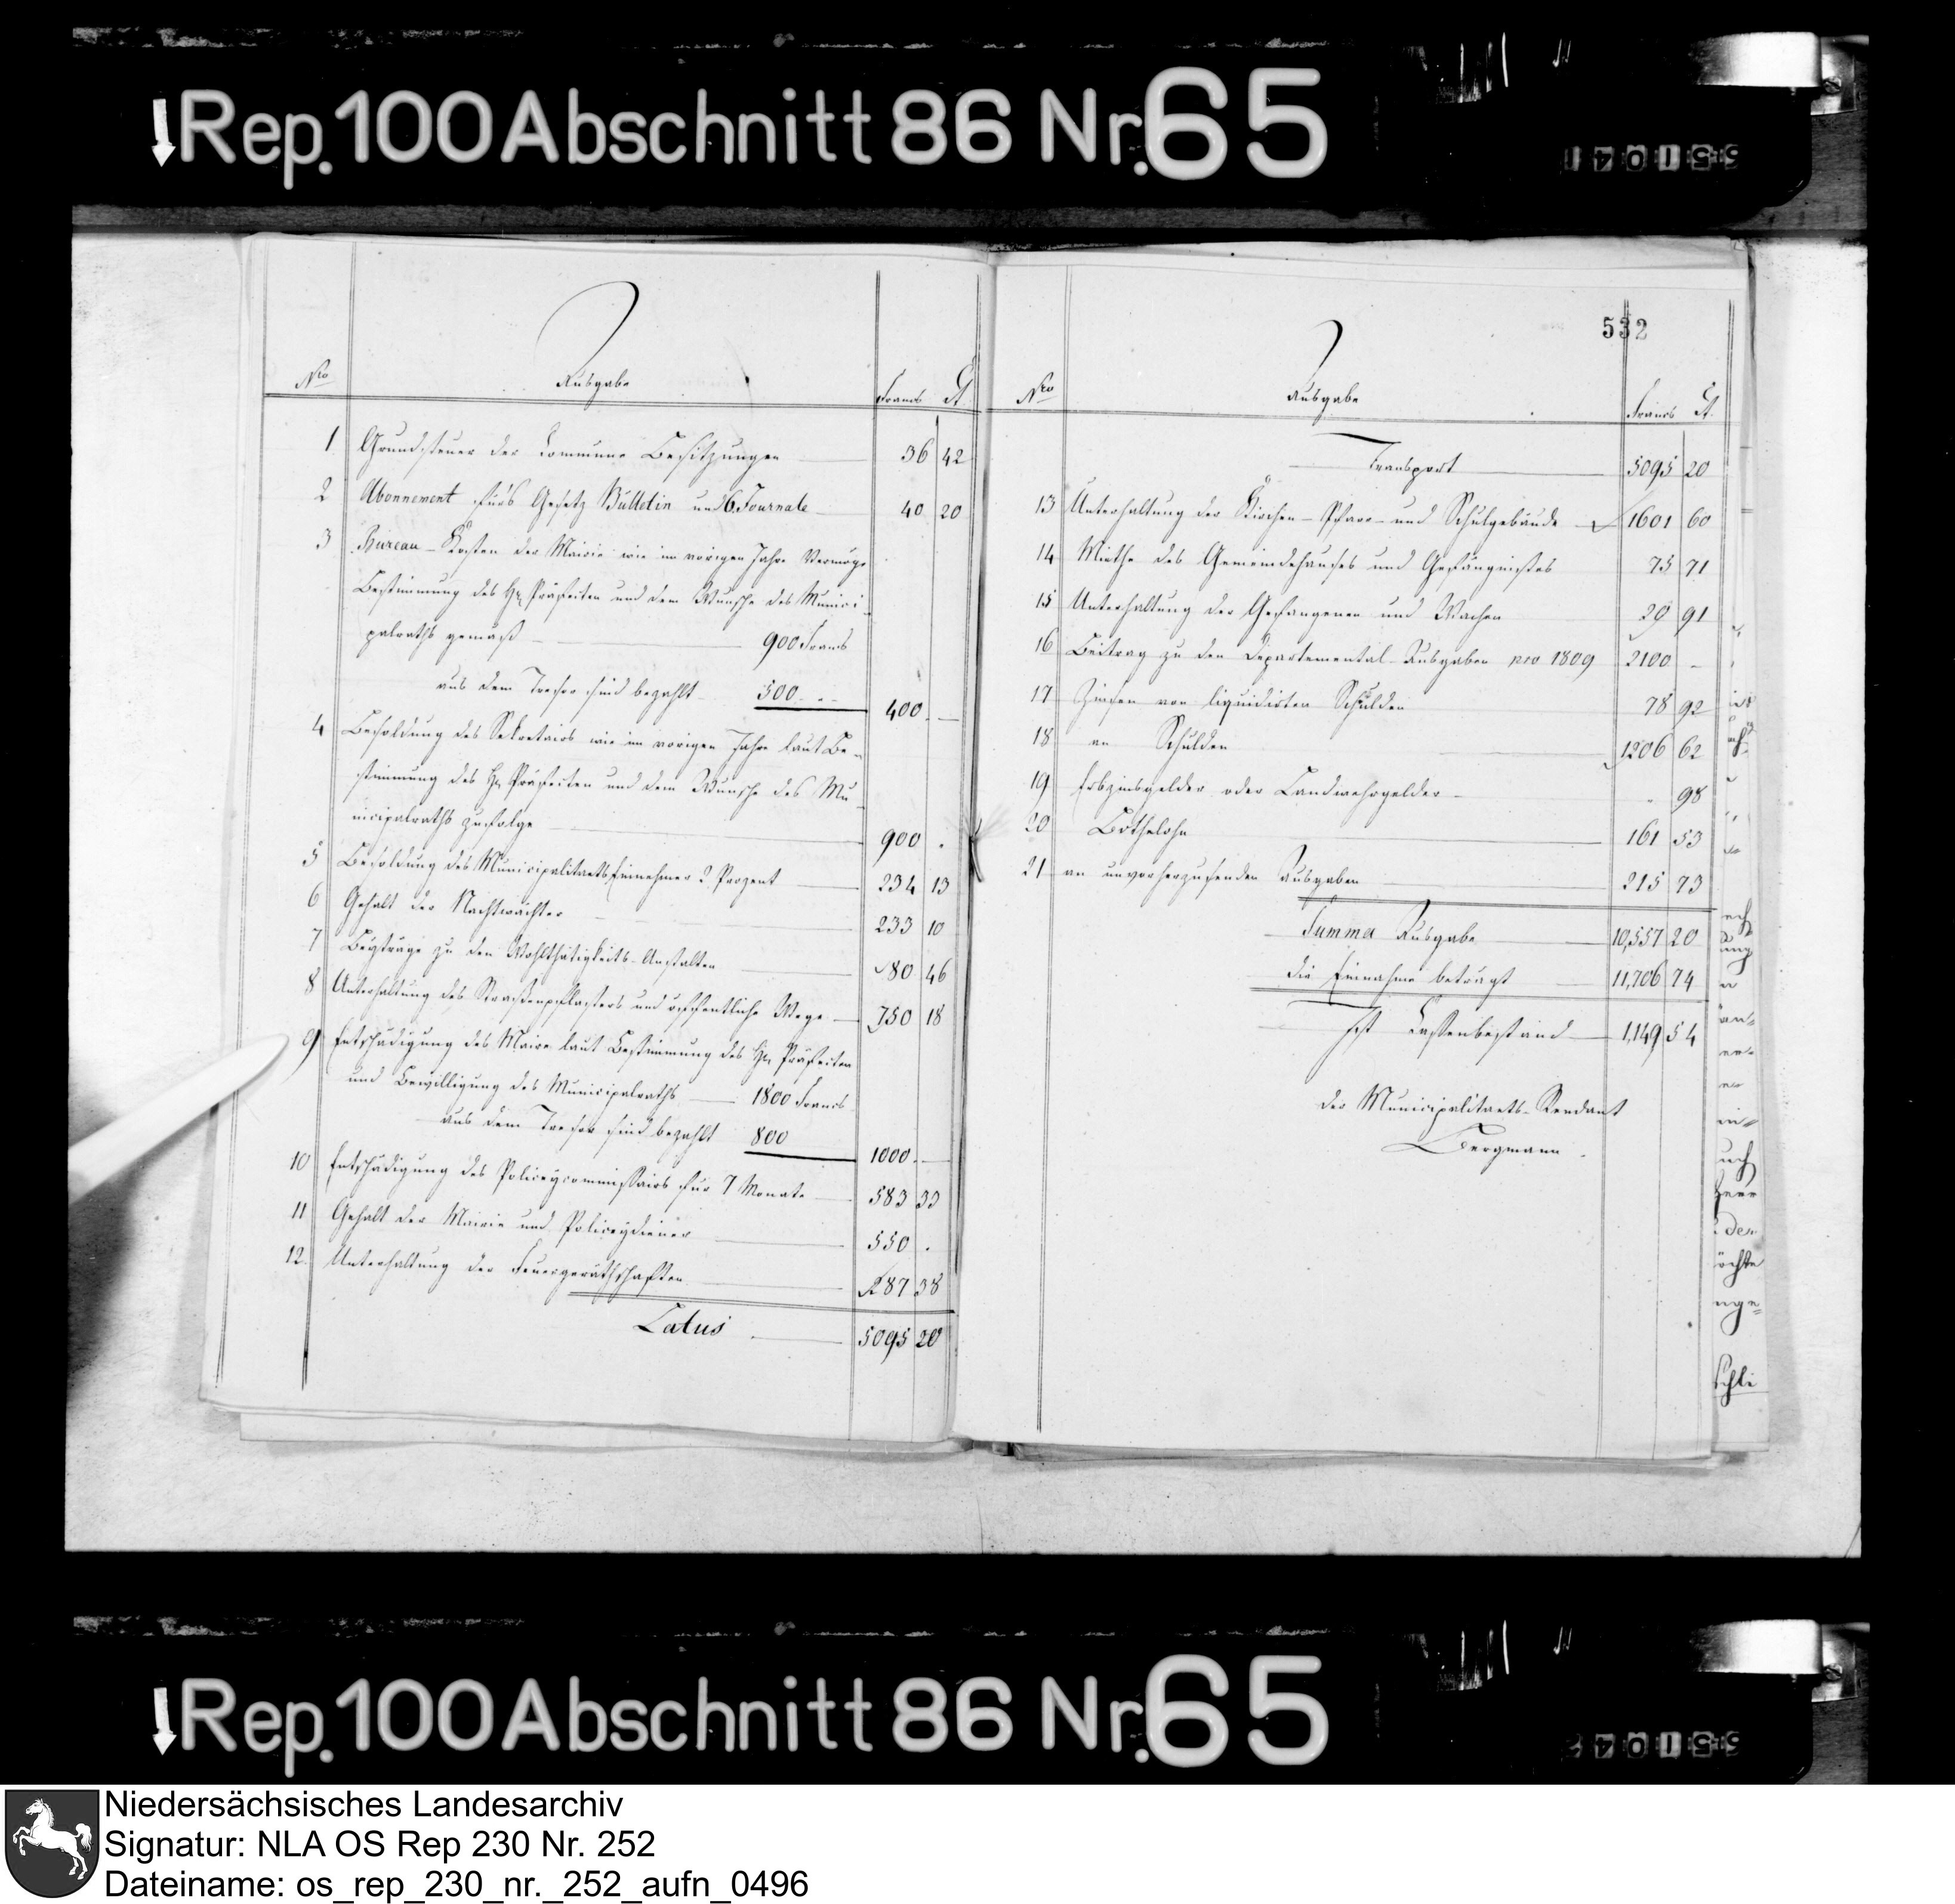 Rep. 100 Abschnitt 86 Nr. 65
532
Nro Ausgabe Francs Ct.
1 Grundsteuer der Commune Besitzungen 36 42
2 Abonnement fürs Gesetz Bulletin und 6 Journale 40 20
3 Bureau-Kosten der Mairie wie im vorigen Jahre Vermöge
Bestimmung des Hn Präfecten und dem Wunsche des Munici-
palraths gemäß 900 Francs
aus dem Tresor sind bezahlt 500 400 –
4 Besoldung des Sekretairs wie im vorigen Jahre laut Be-
stimmung des Hn Präfecten und dem Wunsche des Mu-
nicipalraths zufolge 900 .
5 Besoldung des Municipalitaets Einnehmer 2 Prozent 234 13
6 Gehalt der Nachtwächter 233 10
7 Beyträge zu den Wohlthätigkeits-Anstalten 80 46
8 Unterhaltung des Straßenpflasters und öffentliche Wege 750 18
9 Entschädigung des Maire laut Bestimmung des Hn Präfecten
und Bewilligung des Municipalraths 1800 Francs
aus dem Tresor sind bezahlt 800 1000 –
10 Entschädigung des Policeycommissairs für 7 Monate 583 33
11 Gehalt der Mairie und Policeydiener 550 .
12 Unterhaltung der Feuergeräthschaften 287 38
Latus 5095 20
Nro Ausgabe Francs Ct.
Transport 5095 20
13 Unterhaltung der Kirchen- Pfarr- und Schulgebäude 1601 60
14 Miethe des Gemeindehauses und Gefängnißes 75 71
15 Unterhaltung der Gefangenen und Wachen 29 91
16 Beitrag zu den Departemental-Ausgaben pro 1809 2100 –
17 Zinsen von liquidirten Schulden 78 92
18 an Schulden 1206 62
19 Erbzinsgelder oder Landwehrgelder . 98
20 Bothelohn 161 53
21 an unvorherzusehenden Ausgaben 215 73
Summa Ausgabe 10,557 20
die Einnahme beträgt 11,706 74
Ist Cassenbestand 1,149 54
der Municipalitaets-Rendant
Bergmann
Rep. 100 Abschnitt 86 Nr. 65
Niedersächsisches Landesarchiv
Signatur: NLA OS Rep 230 Nr. 252
Dateiname: os_rep_230_nr._252_aufn_0496